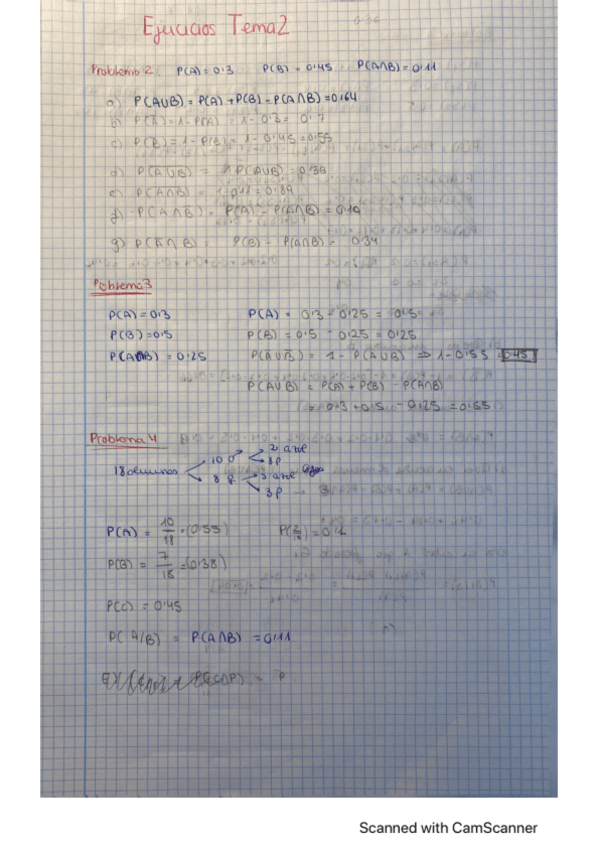 Ejercicios Tema 2
Problema 2. P(A) = 0'3 P(B) = 0'45 P(A∩B) = 0'11
a) P(A∪B) = P(A) + P(B) - P(A∩B) = 0'64
b) P(A̅) = 1 - P(A) = 1 - 0'3 = 0'7
c) P(B̅) = 1 - P(B) = 1 - 0'45 = 0'55
d) P(A∪B) = 1 P(A∪B) = 0'36
e) P(A∩B) = 1 - 0'11 = 0'89
f) P(A∩B̅) = P(A) - P(A∩B) = 0'19
g) P(A̅∩B) = P(B) - P(A∩B) = 0'34
Problema 3
P(A) = 0'3 P(A) = 0'3 - 0'25 =
P(B) = 0'5 P(B) = 0'5 - 0'25 = 0'25
P(A∩B) = 0'25 P(A̅∪B̅) = 1 - P(A∪B) ⇒ 1 - 0'55 = 0'45
P(A∪B) = P(A) + P(B) - P(A∩B)
0'3 + 0'5 - 0'25 = 0'55
Problema 4
18 alumnos 10 ♂
8 ♀
3P
P(A) = 10/18 = (0'55)
P(B) = 7/18 = (0'38)
P(C) = 0'45
P(A/B) = P(A∩B) = 0'11
Scanned with CamScanner